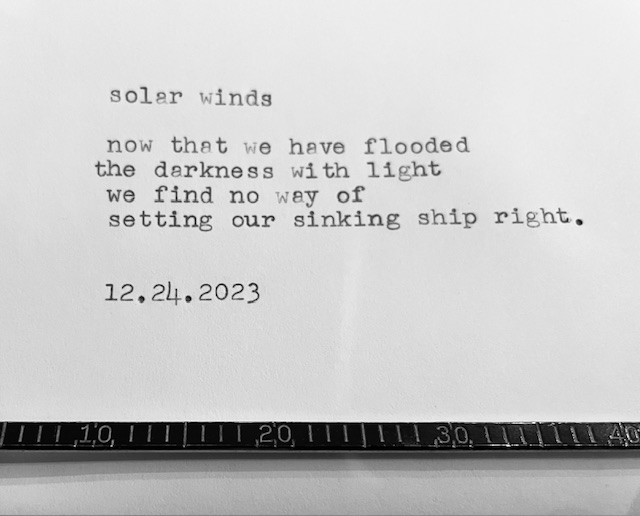 solar winds
now that we have flooded
the darkness with light
we find no way of
setting our sinking ship right.
12.24.2023
10 20 30 40